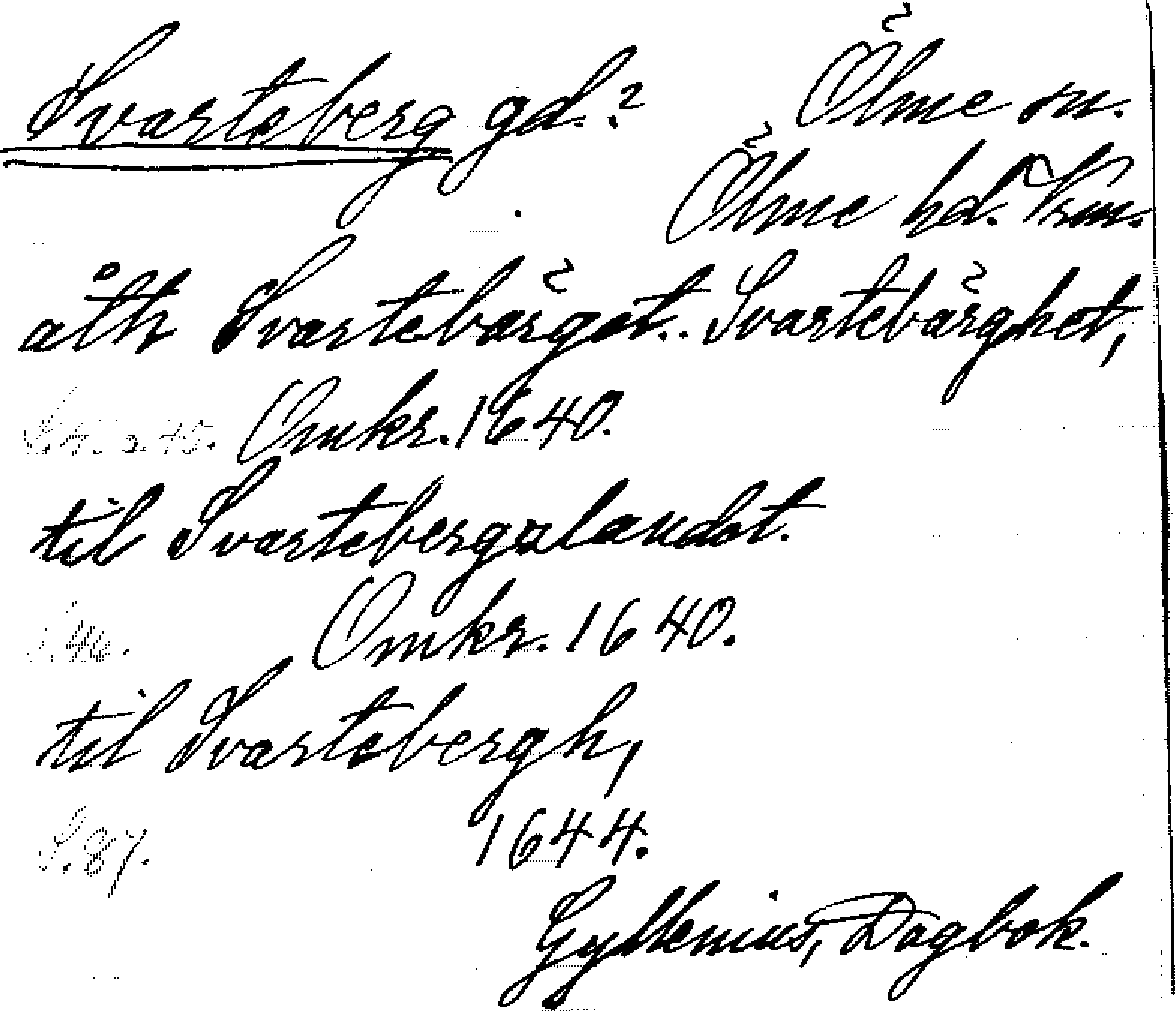 Svarteberg gd.? Ölme sn.
Ölme hd. Vrm.
åth Svartebärget. Svartebärghet,
S. 45. Omkr. 1640.
til Svartebergalandet.
S. 46. Omkr. 1640.
til Svartebergh,
S. 87. 1644.
Gyllenius, Dagbok.